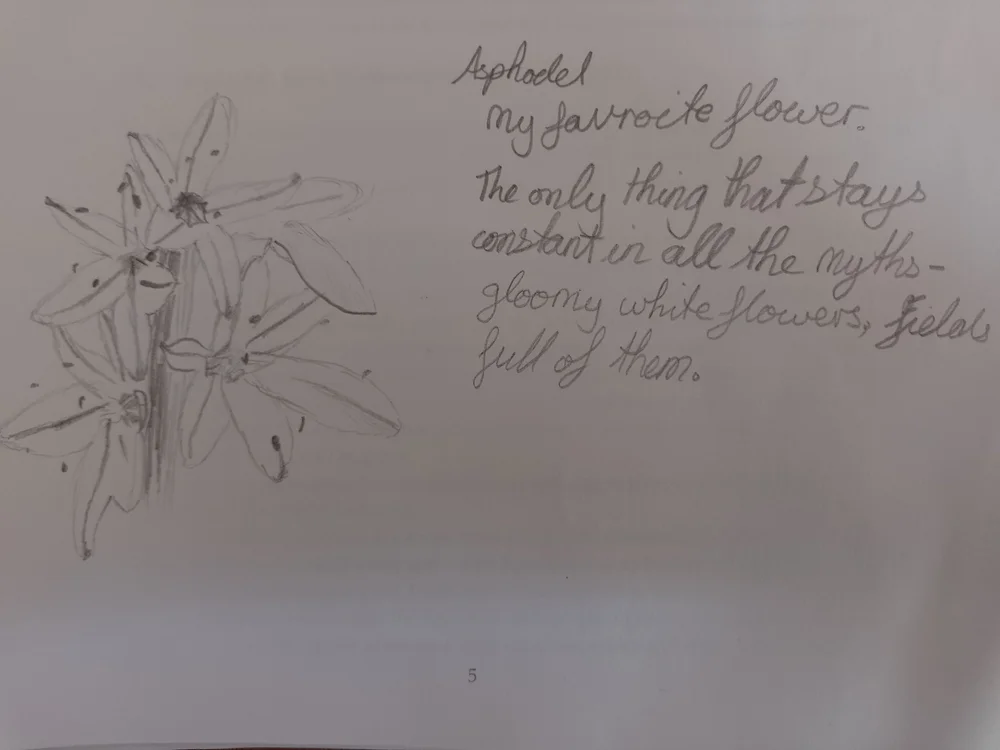 Asphodel
My favroite flower.
The only thing that stays
constant in all the myths-
gloomy white flowers, fields
full of them.
5